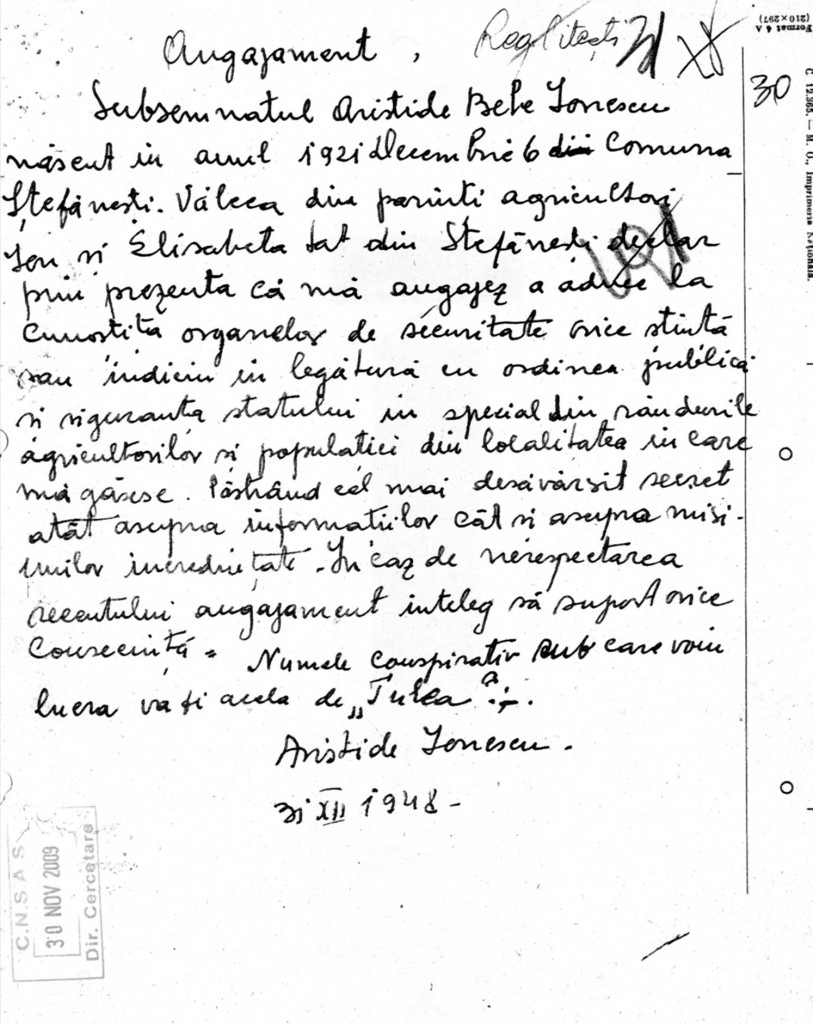 Angajament,
30
Subsemnatul Aristide Bebe Ionescu
născut in anul 1921 Decembrie 6 din Comuna
Ștefănești. Vâlcea din parinti agricultori
Ion si Elisabeta sat din Ștefănești declar
prin prezenta că mă angajez a aduce la
organelor de securitate orice stiintă
sau indiciu in legătură cu ordinea publică
si siguranta statului in special din rândurile
agricultorilor si populatiei din localitatea in care
mă găsesc. Păstrând cel mai desăvârsit secret
atât asupra informatiilor cât si asupra misi-
unilor incredințate. In caz de nerespectarea
angajament inteleg să suport orice
Numele conspirativ sub care voiu
lucra va fi acela de „Tulea
Aristide Ionescu.
31 XII 1948-
C.N.S.A.S
30 NOV 2009
Dir. Cercetare
Format A 4
(210×297)
C. 12.365. — M. O., Imprimeria Națională.